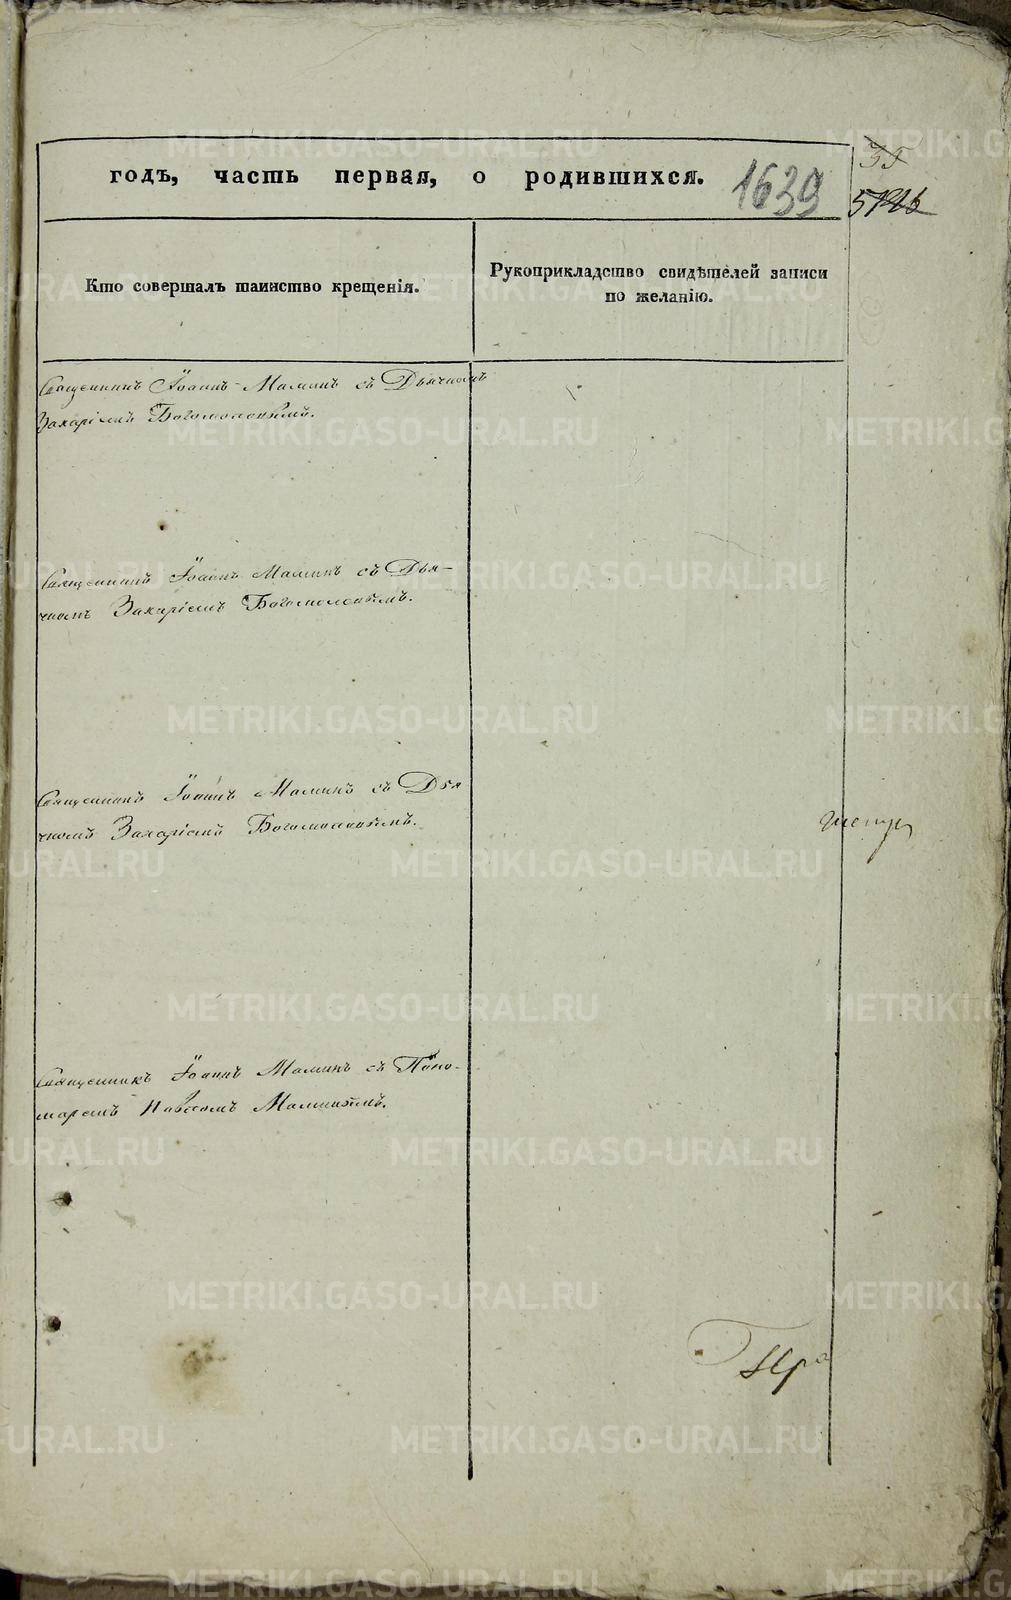 годъ, часть первая, о родившихся.
1639
35
Кто совершалъ таинство крещенія.
Рукоприкладство свидѣтелей записи
по желанію.
Священникъ Іоаннъ Маминъ съ Дьячкомъ
Захаріемъ Богомоловымъ.
Священникъ Іоаннъ Маминъ съ Дья-
чкомъ Захаріемъ Богомоловымъ.
Священникъ Іоаннъ Маминъ съ Дья
чкомъ Захаріемъ Богомоловымъ.
Священникъ Іоаннъ Маминъ съ Поно-
маремъ Маминымъ.
METRIKI.GASO-URAL.RU